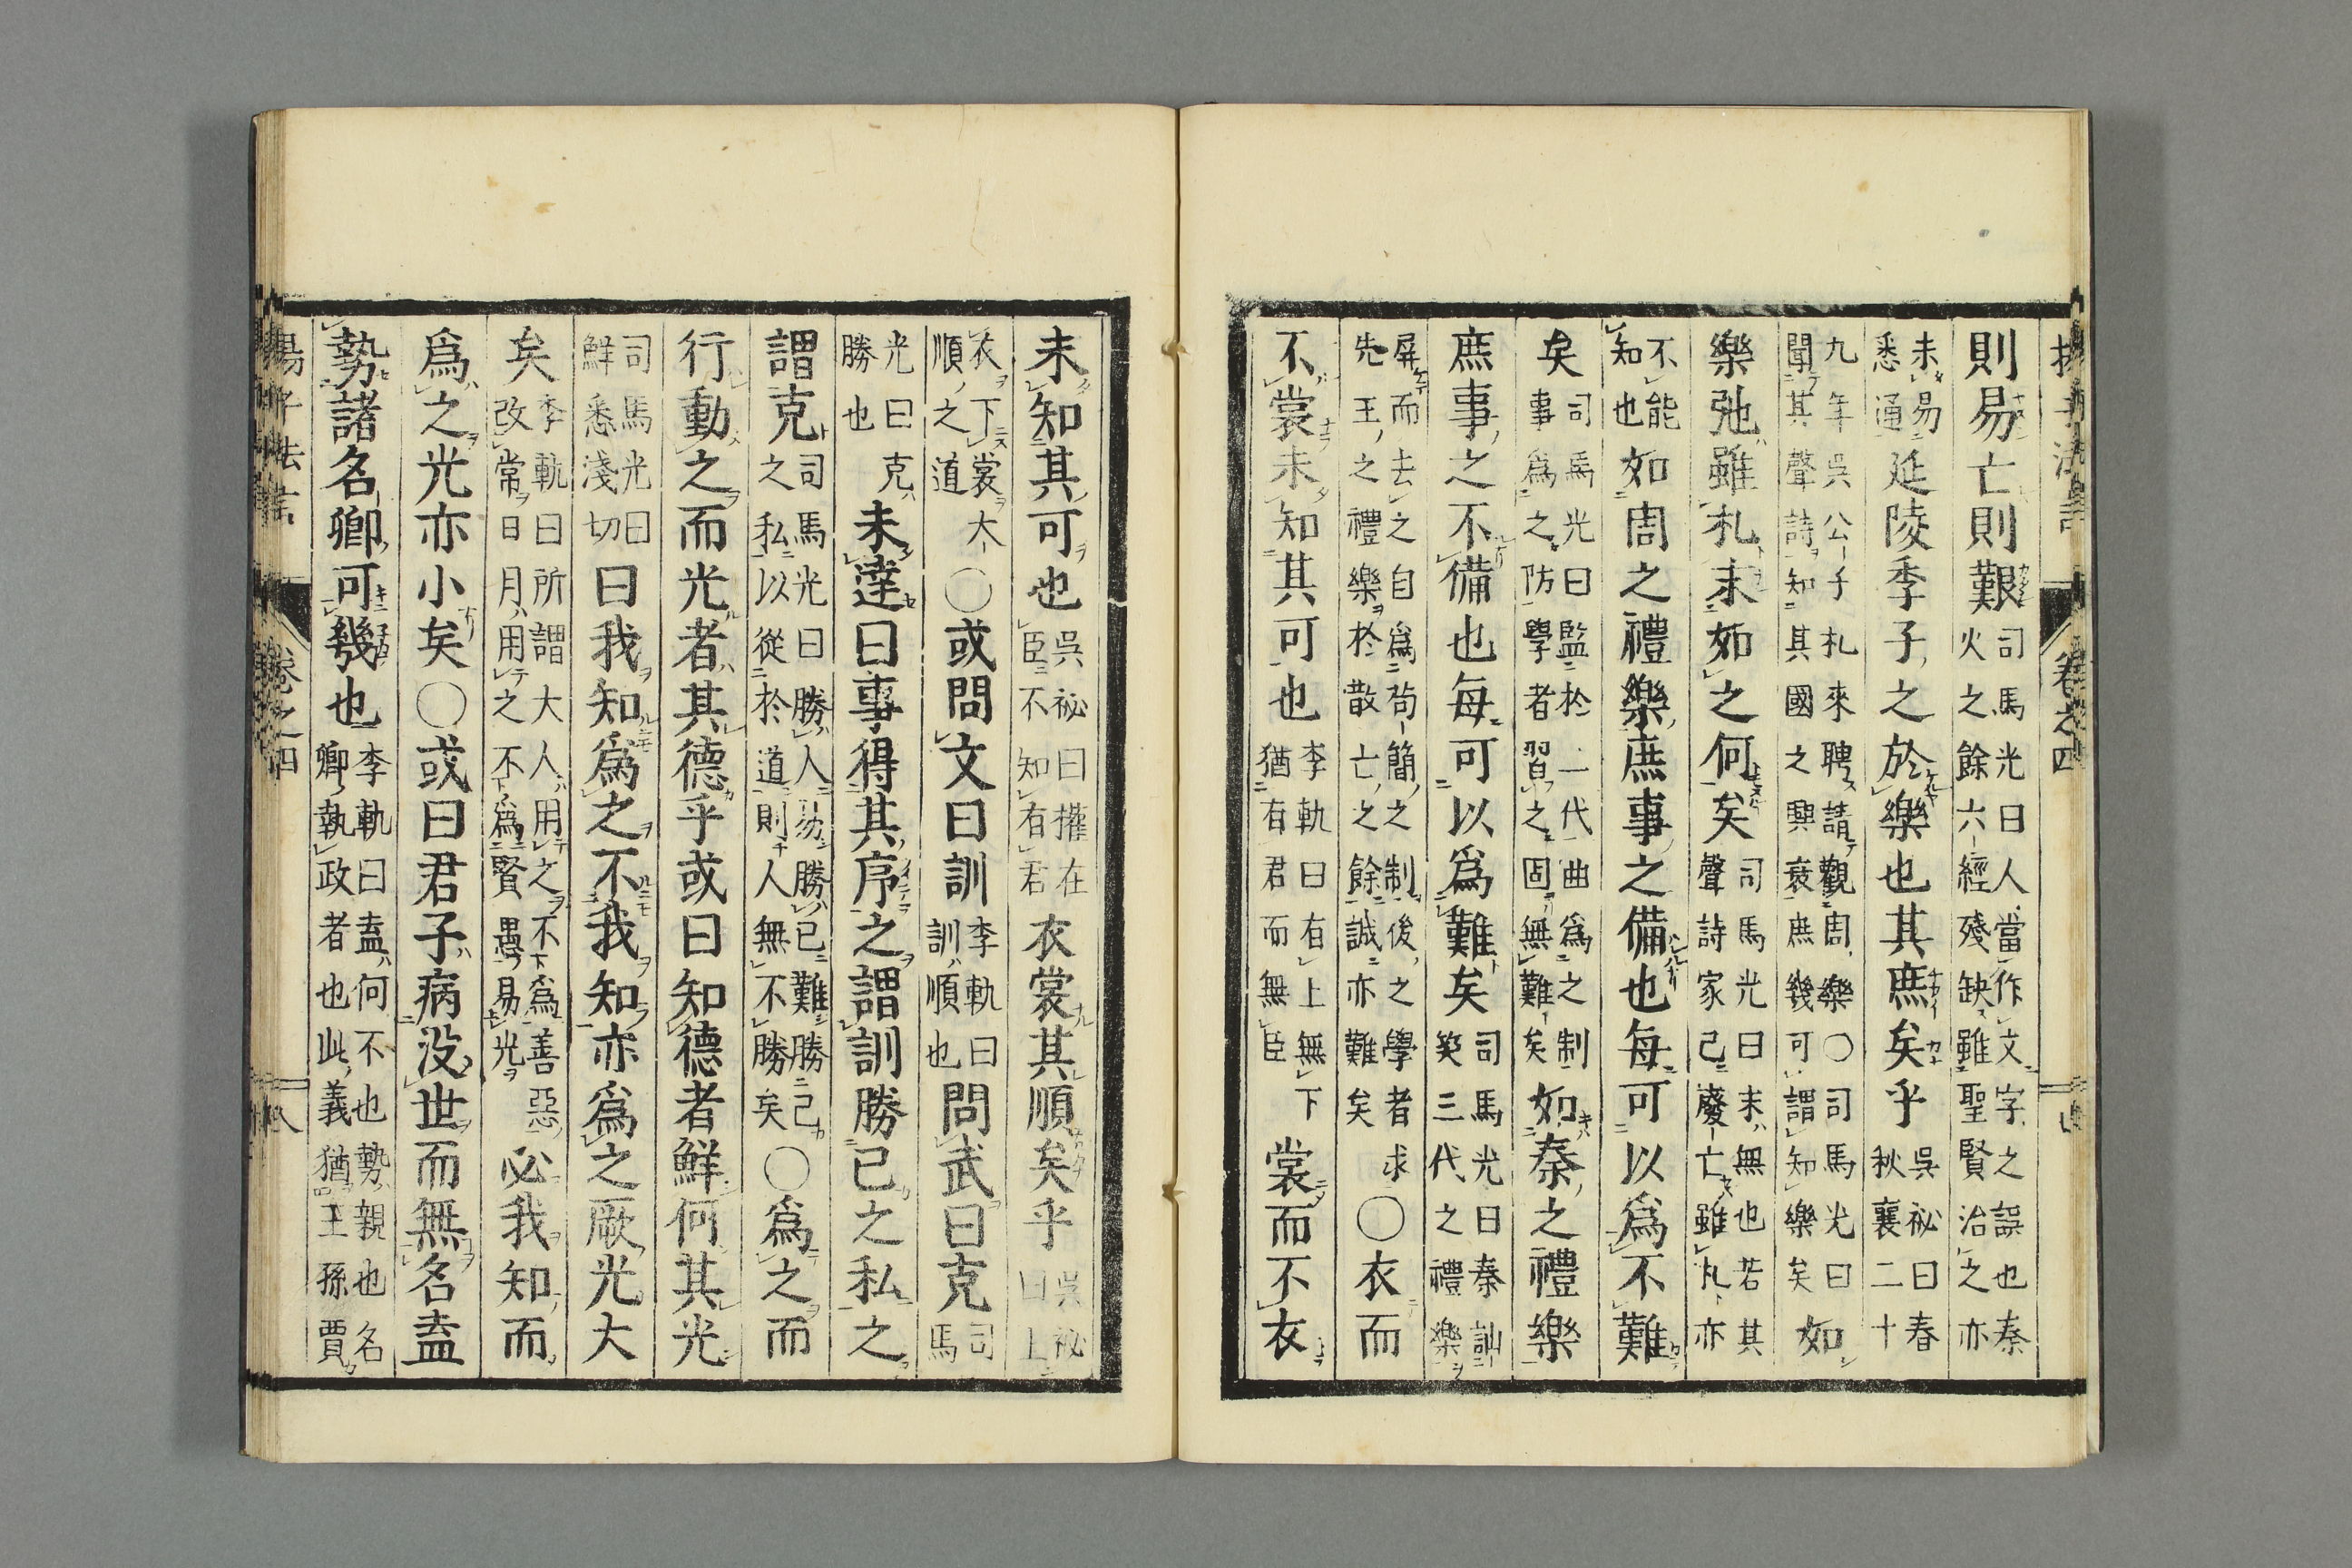 卷之四
則易亡則艱司馬光曰人當作文字之誤也秦
火之餘六經殘缺雖聖賢治之亦
未易
悉通延陵季子之於樂也其庶矣乎吳祕曰春
秋襄二十
九年吳公子札來聘請觀周樂○司馬光曰
聞其聲詩知其國之興衰庶幾可謂知樂矣如
樂弛雖札末如之何矣司馬光曰末無也若其
聲詩家已廢亡雖札亦
不能
知也如周之禮樂庶事之備也每可以爲不難
矣司馬光曰監於二代曲爲之制
事爲之防學者習之固無難矣如秦之禮樂
庶事之不備也每可以爲難矣司馬光曰秦訕
笑三代之禮樂
屏而去之自爲苟簡之制後之學者求
先王之禮樂於散亡之餘誠亦難矣○衣而
不裳未知其可也李軌曰有上無下
猶有君而無臣裳而不衣
未知其可也吳祕曰權在
臣不知有君衣裳其順矣乎吳祕
曰上
衣下裳大
順之道○或問文曰訓李軌曰
訓順也問武曰克司
馬
光曰克
勝也未達曰事得其序之謂訓勝己之私之
謂克司馬光曰勝人易勝己難勝己
之私以從於道則人無不勝矣○爲之而
行動之而光者其德乎或曰知德者鮮何其光
司馬光曰
鮮悉淺切曰我知爲之不我知亦爲之厥光大
矣李軌曰所謂大人用之不爲善惡
改常日月用之不爲賢愚易光必我知而
爲之光亦小矣○或曰君子病没世而無名盍
勢諸名卿可幾也李軌曰盍何不也勢親也名
卿執政者也此義猶王孫賈
卷之四 八